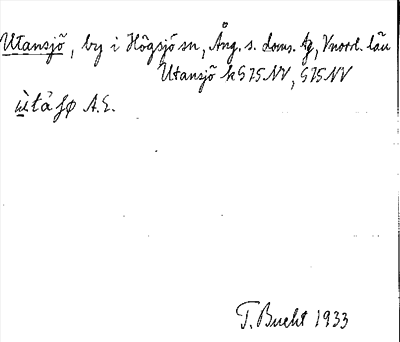 Utansjö, by i Högsjö sn, Ång. s. doms. tg, Vnorrl. län
Utansjö kG75NV, G75NV
A.E.
T. Bucht 1933